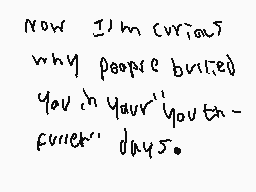 Now I'm curious
why people bullied
you in your "youth-
fuller" days.